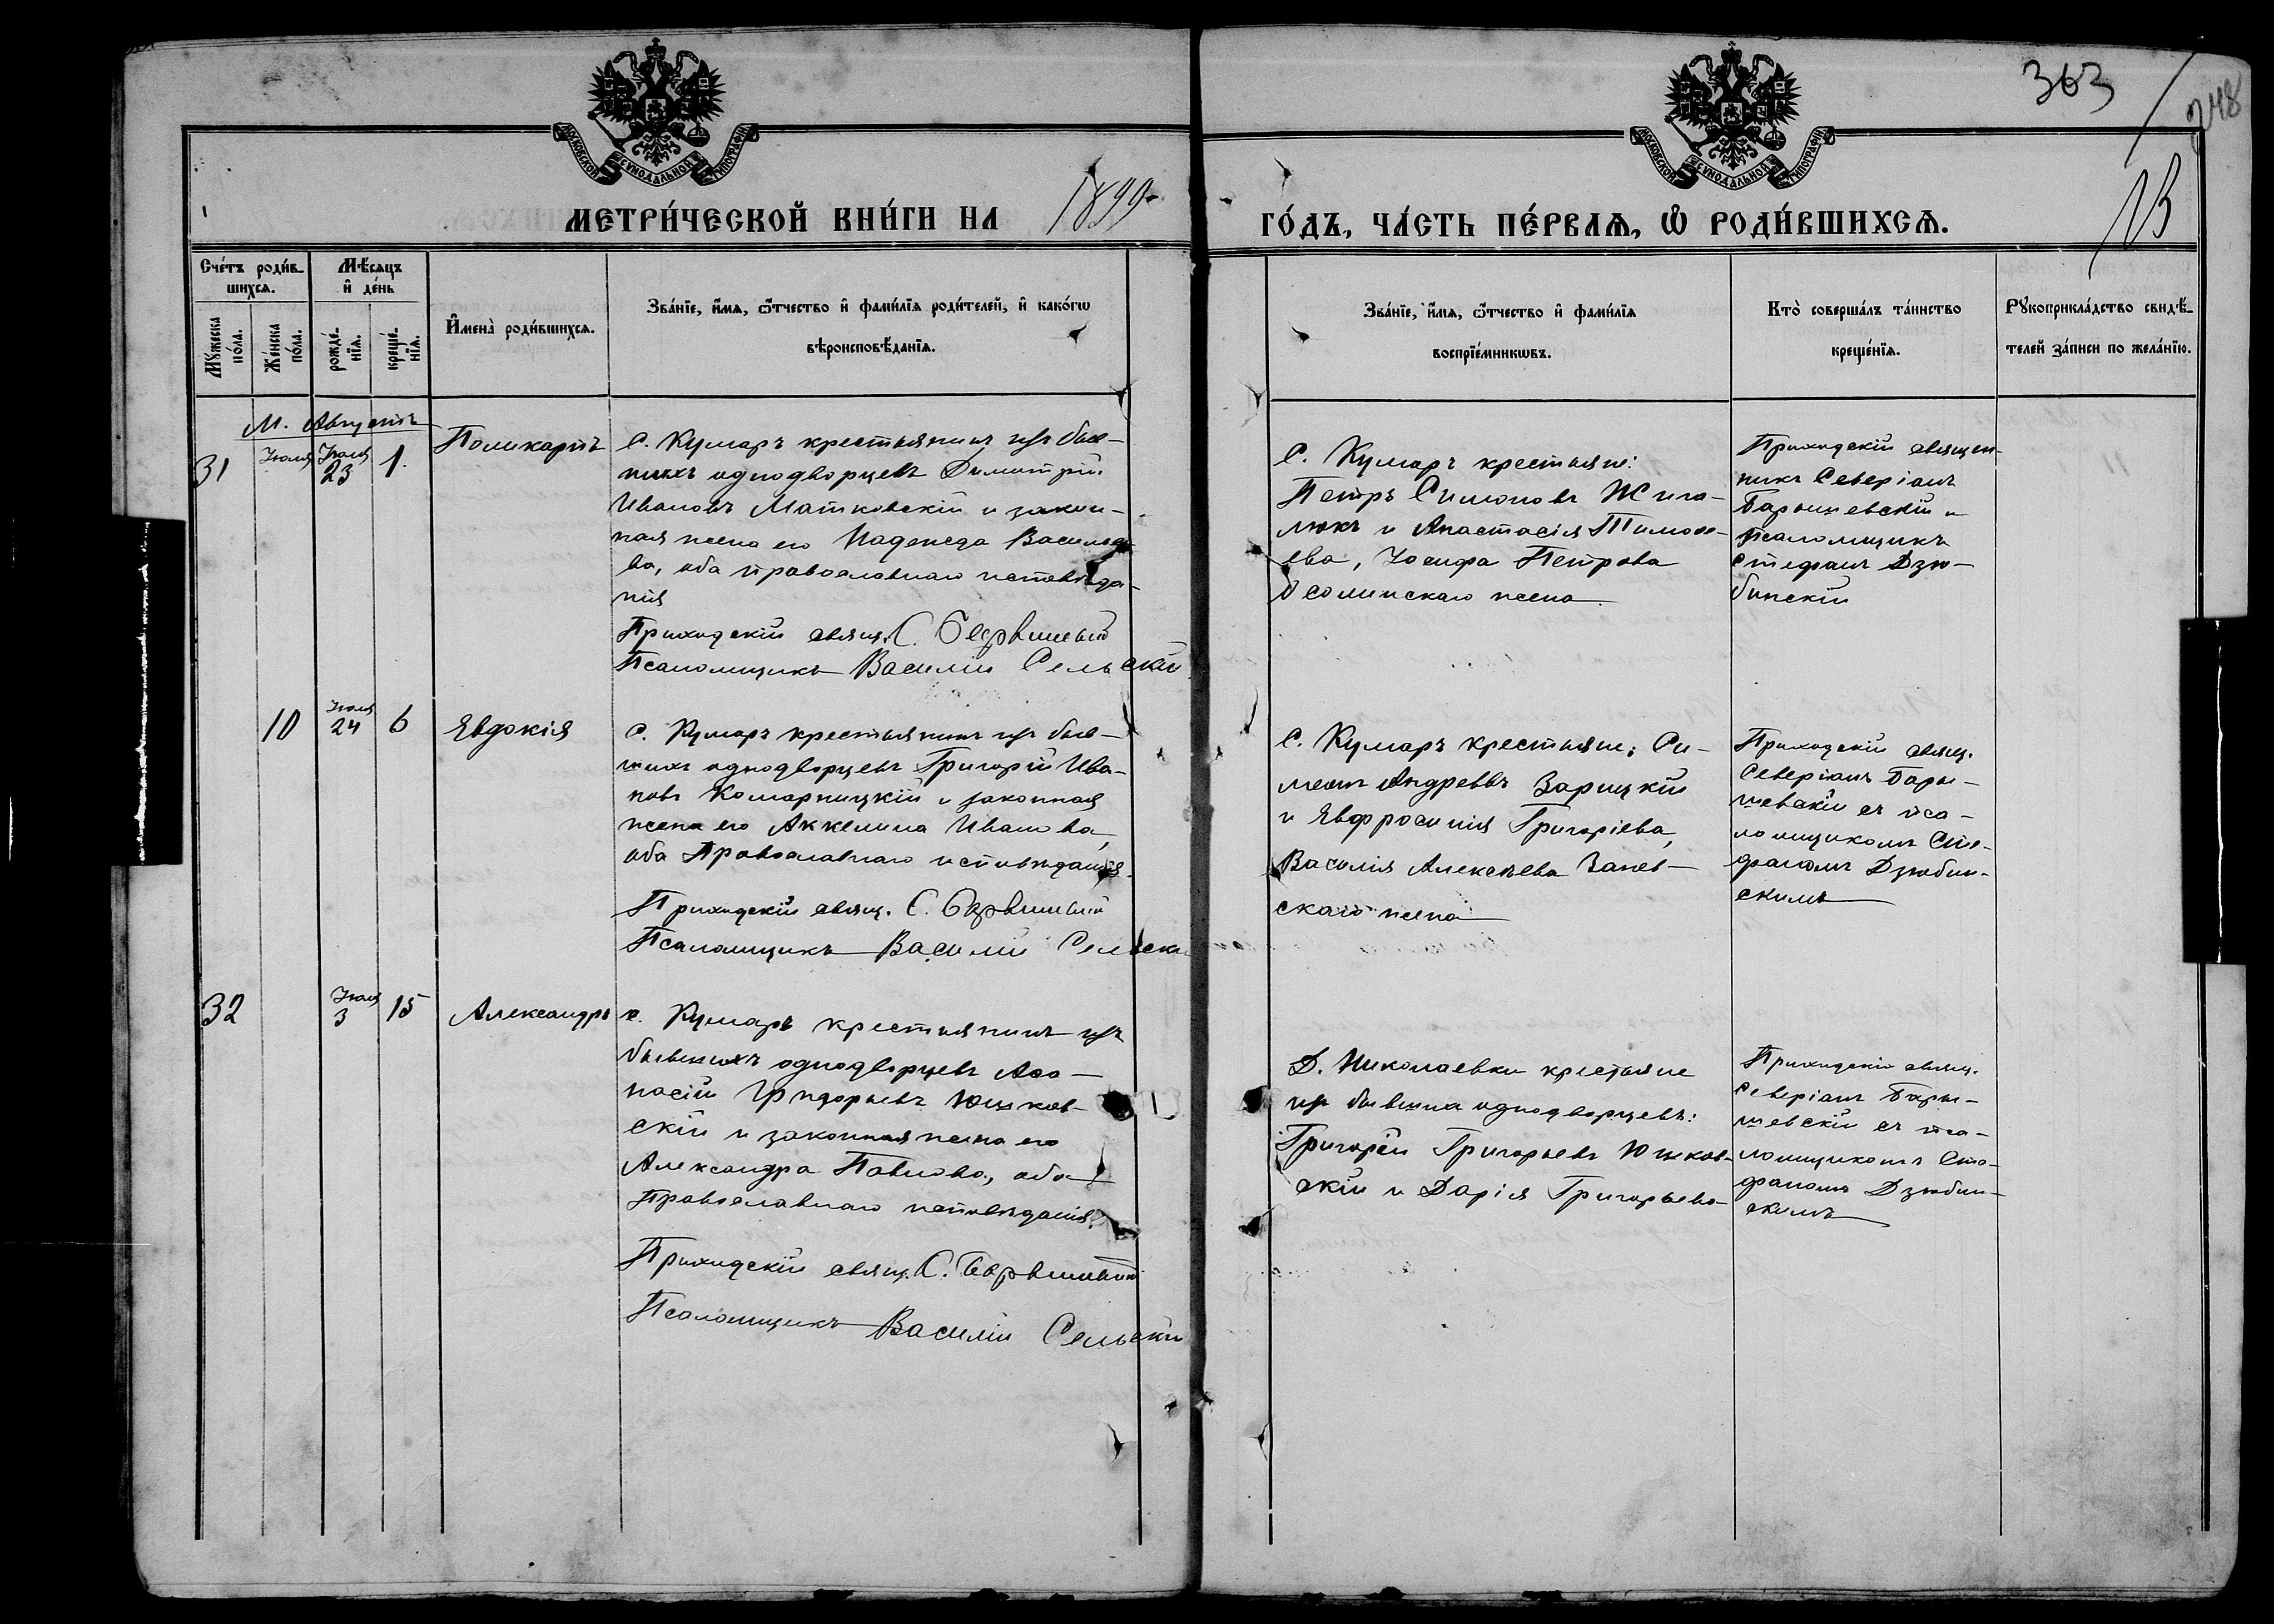 363
248
МОСКОВСКОЙ СѴНОДАЛЬНОЙ ТИПОГРАФІИ
МОСКОВСКОЙ СѴНОДАЛЬНОЙ ТИПОГРАФІИ
МЕТРИ́ЧЕСКОЙ КНИ́ГИ НА 1899
ГО́ДЪ, ЧА́СТЬ ПЕ́РВАѦ, Ѡ҆ РОДИ́ВШИХСѦ.
Сче́тъ роди́в-
шихсѧ.
Мѣ́сѧцъ
и҆ де́нь
Мꙋ́жеска
по́ла.
Же́нска
по́ла.
рожде́-
нїѧ.
креще́-
нїѧ.
И҆мена̀ роди́вшихсѧ.
Зва́нїе, и҆́мѧ, ѻ҆́тчество и҆ фами́лїѧ роди́телей, и҆ како́гѡ
вѣроисповѣ́данїѧ.
Зва́нїе, и҆́мѧ, ѻ҆́тчество и҆ фами́лїѧ
воспрїе́мникѡвъ.
Кто̀ соверша́лъ та́инство
креще́нїѧ.
Рꙋкоприкла́дство свидѣ́-
телей за́писи по жела́нїю.
М. Августъ
31 Іюля Іюля 23 1. Поликарпъ
С. Кумаръ крестьянинъ изъ быв-
шихъ однодворцевъ Димитрій
Ивановъ Матковскій и закон-
ная жена его Надежда Василье-
ва, оба православнаго исповѣда-
нія
Приходскій свящ. С.
Псаломщикъ Василій Сельскій
С. Кумаръ крестьяне:
Петръ Симоновъ Жига-
люкъ и Анастасія Тимоѳе-
ева, Іосифа Петрова
Осолинскаго жена.
Приходскій священ-
никъ Северіанъ
Барышевскій и
Псаломщикъ
Стефанъ Дзю-
бинскій
10 Іюля 24 6 Евдокія
С. Кумаръ крестьянинъ изъ быв-
шихъ однодворцевъ Григорій Ива-
новъ Комарницкій и законная
жена его Аккелина Иванова,
оба Православнаго исповѣданія.
Приходскій свящ. С.
Псаломщикъ Василій Сельскі
С. Кумаръ крестьяне: Си-
меонъ Андреевъ Зарицкій
и Евфросинія Григоріева,
Василія Алексѣева Занев-
скаго жена
Приходскій свящ.
Северіанъ Бары-
шевскій съ пса-
ломщикомъ Сте-
фаномъ Дзюбин-
скимъ
32 Іюля 3 15 Александръ
с. Кумаръ крестьянинъ изъ
бывшихъ однодворцевъ Аѳа-
насій Григорьевъ Юшков-
скій и законная жена его
Александра Павлова, оба
Православнаго исповѣданія.
Приходскій свящ. С.
Псаломщикъ Василій Сельскі
Д. Николаевки крестьяне
изъ бывши однодворцевъ:
Григорій Григорьевъ Юшков-
скій и Дарія Григорьева
Приходскій свящ.
Северіанъ Бары-
шевскій съ пса-
ломщикомъ Сте-
фаномъ Дзюбин-
скимъ